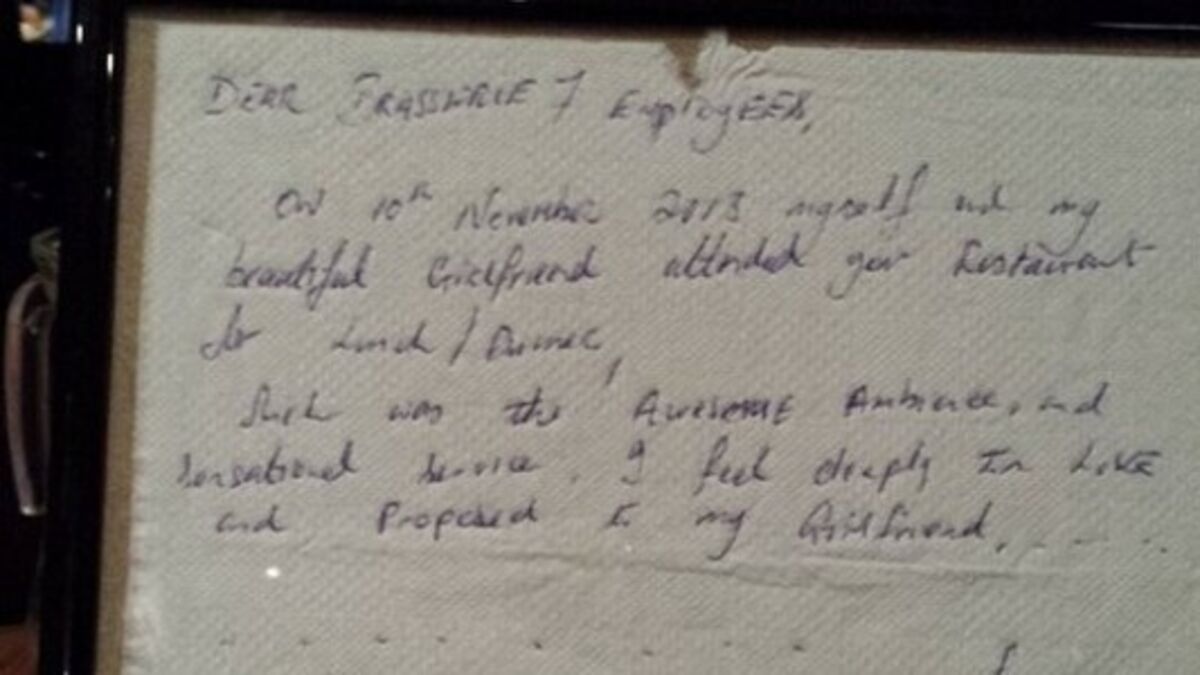 DEAR BRASSERIE 7 EmployEEES,
ON 10th November 2013 myself and my
beautiful Girlfriend attended your Restaurant
for Lunch / Dinner,
Such was the AWESOME Ambience, and
Sensational Service. I feel deeply In LOVE
and Proposed to my Girlfriend, . - - . .
. - - - - - -